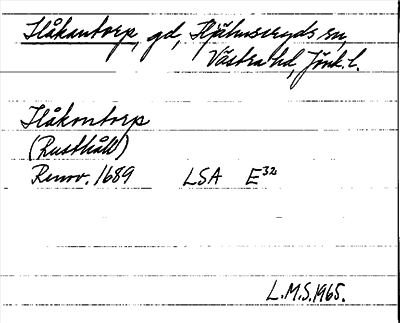 Håkantorp, gd, Hjälmseryds sn,
Västra hd, Jönk. l.
Håkontorp
(Rusthåll)
Renov. 1689 LSA E³²
L.M.S. 1965.